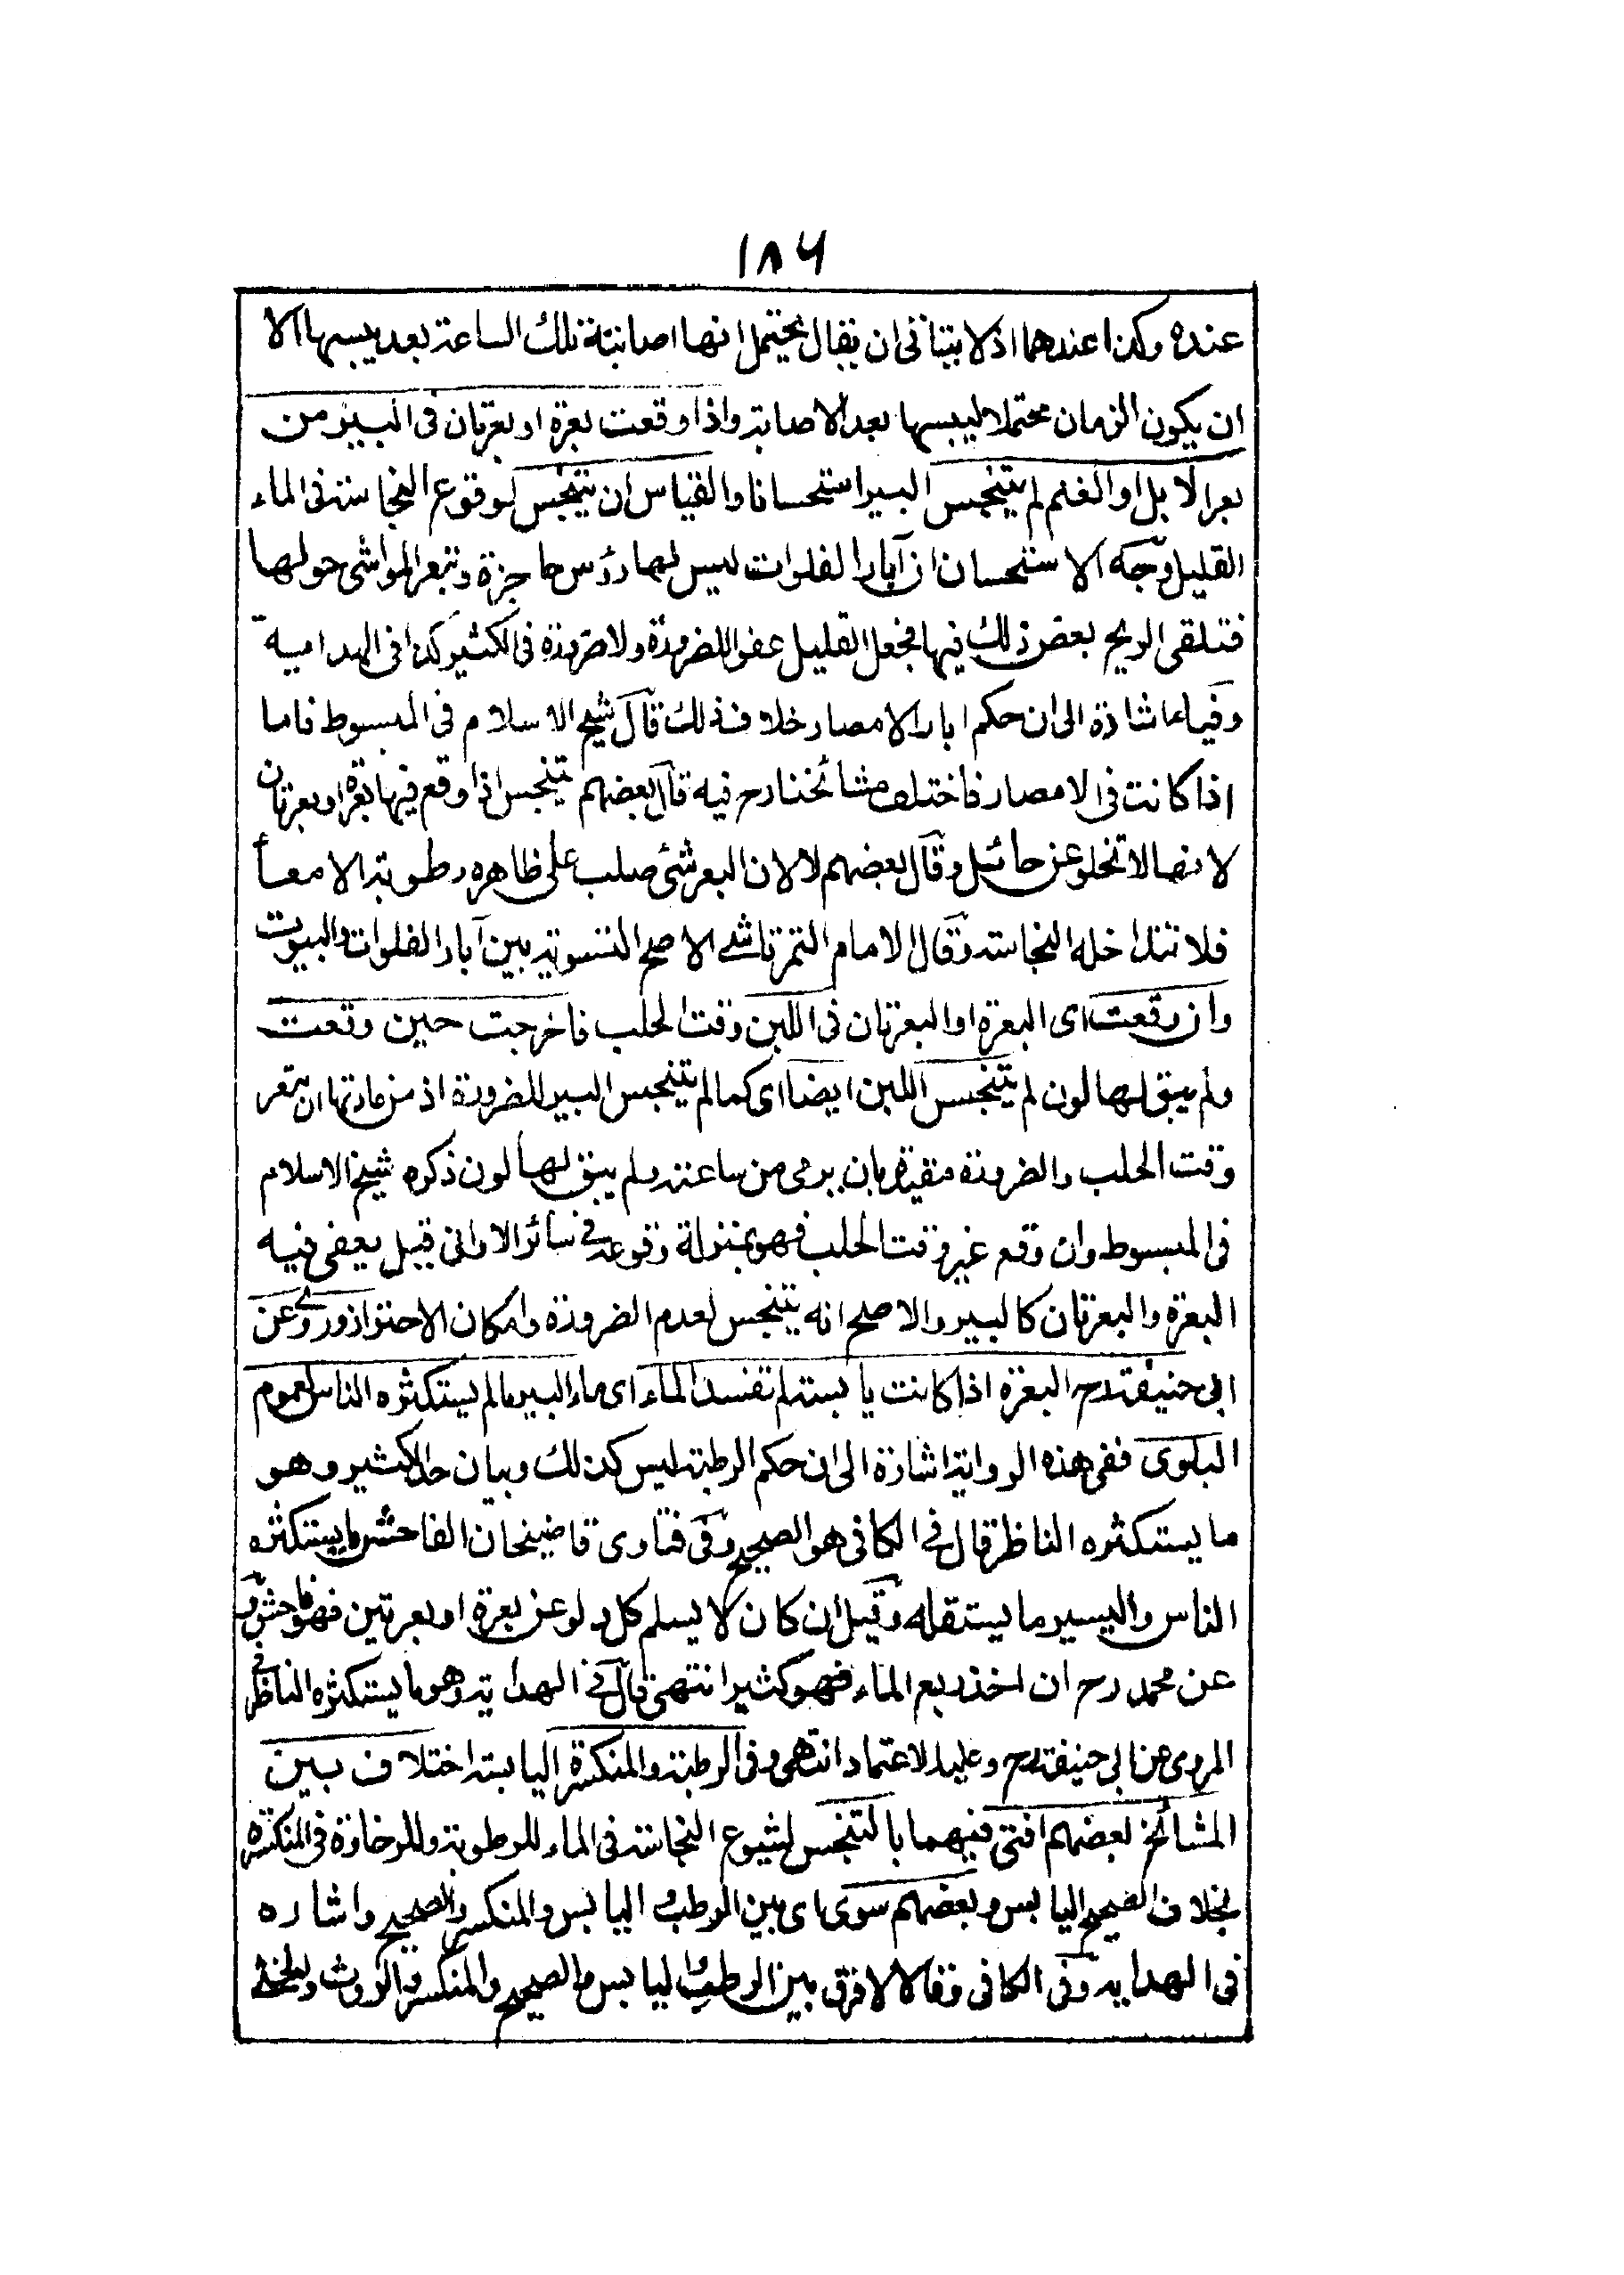 ١٨٦
عنده وكذا عندهما اذ لا يتأتى ان يقال يحتمل انها اصابته تلك الساعة بعد يبسها الا
ان يكون الزمان محتملا ليبسها بعد الاصابة واذا وقعت بعرة او بعرتان فى البير من
بعر الابل او الغنم لم يتنجس البير استحسانا والقياس ان يتنجس لوقوع النجاسة فى الماء
القليل وجه الاستحسان ان آبار الفلوات ليس لها رؤس حاجزة وتبعر المواشى حولها
فتلقى الريح بعض ذلك فيها فجعل القليل عفوا للضرورة ولا ضرورة فى الكثير كذا فى الهداية
وفيه اشارة الى ان حكم ابار الامصار خلاف ذلك قال شيخ الاسلام فى المبسوط فاما
اذا كانت فى الامصار فاختلف مشائخنا رح فيه قال بعضهم يتنجس اذا وقع فيها بعرة او بعرتان
لانها لا تخلو عن حائل وقال بعضهم لا لان البعر شئ صلب على ظاهره رطوبة الامعأ
فلا تتداخله النجاسة وقال الامام التمرتاشى الاصح التسوية بين آبار الفلوات والبيوت
وان وقعت اى البعرة او البعرتان فى اللبن وقت الحلب فاخرجت حين وقعت
ولم يبق لها لون لم يتنجس اللبن ايضا اى كما لم يتنجس البير للضرورة اذ من عادتها ان تبعر
وقت الحلب والضرورة مقيدة بان يرمى من ساعته ولم يبق لها لون ذكره شيخ الاسلام
فى المبسوط وان وقع غير وقت الحلب فهو بمنزلة وقوعه فى سائر الاوانى قيل يعفى فيه
البعرة والبعرتان كالبير والاصح انه يتنجس لعدم الضرورة وامكان الاحتراز وروى عن
ابى حنيفة رح البعرة اذا كانت يابسة لم تفسد الماء اى ماء البير مالم يستكثره الناس لعموم
البلوى ففى هذه الرواية اشارة الى ان حكم الرطبة ليس كذلك وبيان حد الكثير وهو
ما يستكثره الناظر قال فى الكافى هو الصحيح وفى فتاوى قاضيخان الفاحش ما يستكثره
الناس واليسير ما يستقله وقيل ان كان لا يسلم كل دلو عن بعرة او بعرتين فهو فاحش و
عن محمد رح ان اخذ ربع الماء فهو كثير انتهى قال فى الهداية وهو ما يستكثره الناظر فى
المروى عن ابى حنيفة رح وعليه الاعتماد انتهى وفى الرطبة والمنكسرة اليابسة اختلاف بين
المشائخ بعضهم افتى فيهما بالتنجس لشيوع النجاسة فى الماء للرطوبة وللرخاوة فى المنكسرة
بخلاف الصحيح اليابس وبعضهم سوى اى بين الرطب و اليابس والمنكسر والصحيح واشاره
فى الهداية وفى الكافى وقالا لا فرق بين الرطب و اليابس والصحيح والمنكسر والروث والخثى